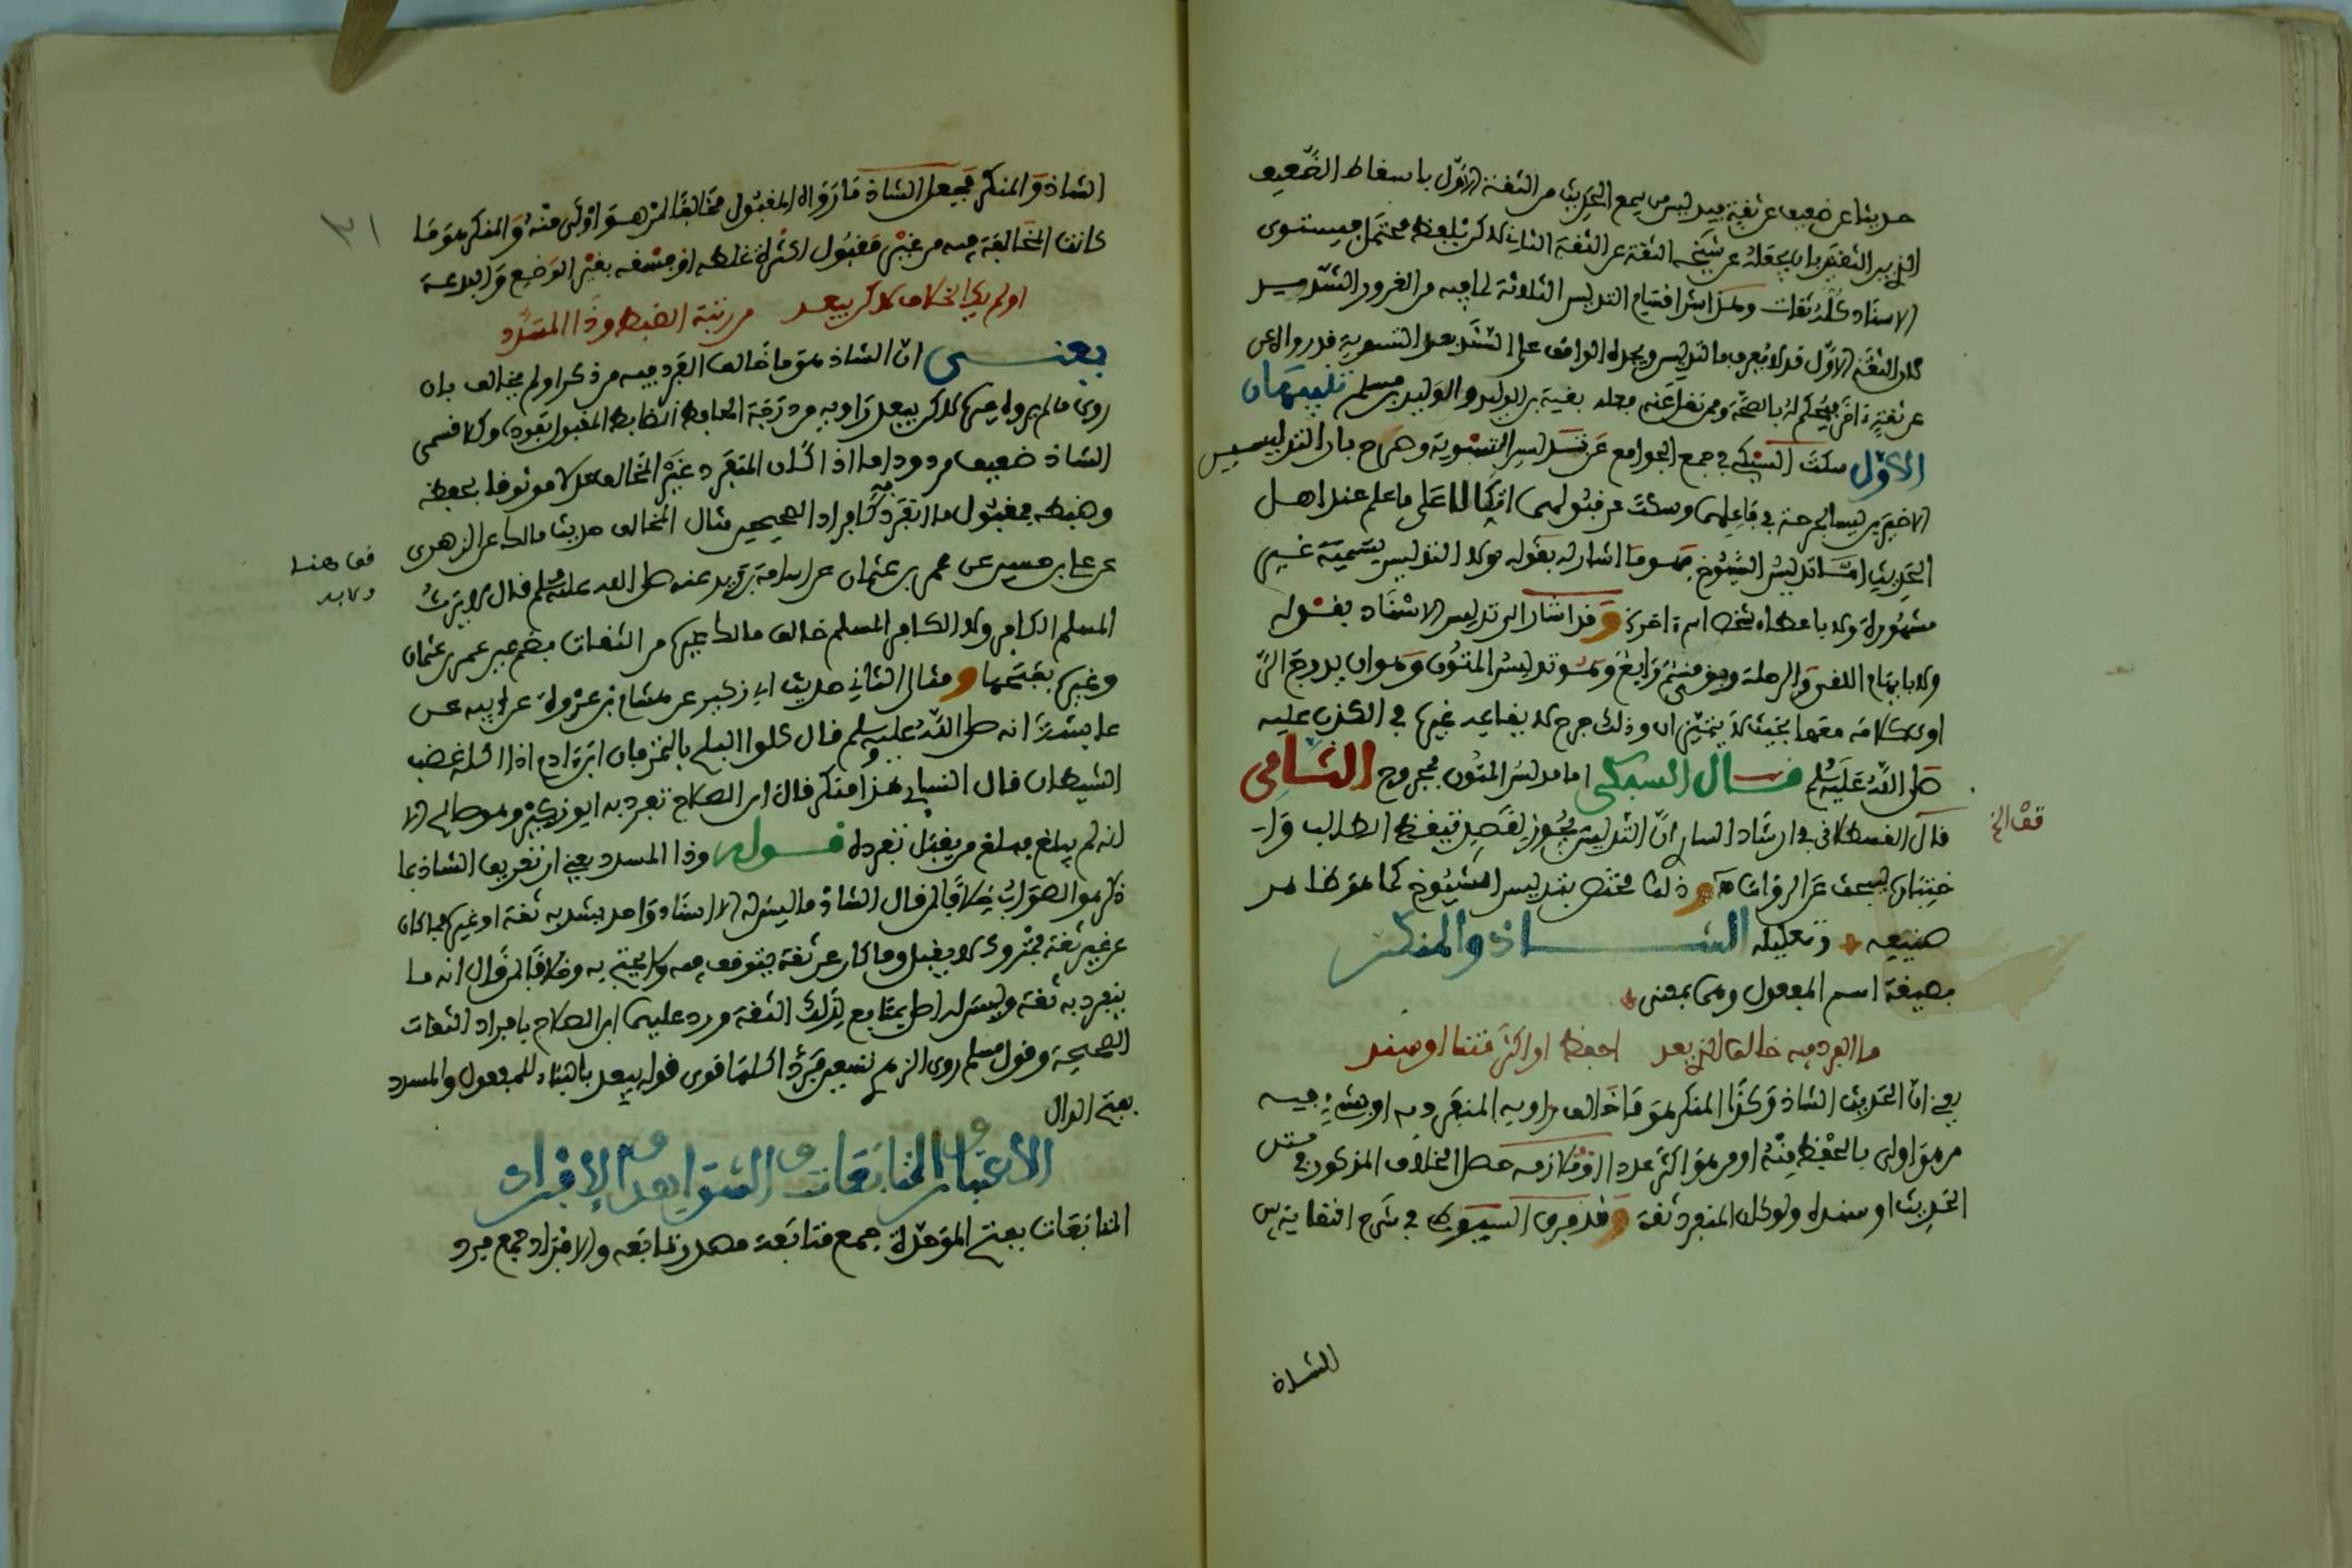 حديثا عن ضعيف عن ثقة فيدليس من سمع الحديث من الثقة الاول باسقاط الضعيف
الذي بين الثقتين بان يجعله عن شيخه الثقة عن الثقة الثاني لاكن بلفظ محتمل فيستوي
الاسناد كله ثقات وهذا شر اقسام التدليس الثلاثة لما فيه من الغرور الشديد
لان الثقة الاول قد لا يعرف بالتدليس ويجده الواقف على السند بعد التسوية قد رواه عن
عن ثقة اخر فيحكم له بالصحة وممن نقل عنه فعله بقية بن الوليد والوليد بن مسلم تنبيهان
الاول سكت السبكي في جمع الجوامع عن تدليس التسوية وصرح بان التدليس
الاخيرين ليسا بجرحة في فاعلهما وسكت عن قبولهما اتكالا على ما علم عند اهل
الحديث اما تدليس الشيوخ فهو ما اشار له بقوله ولا التدليس بتسمية غير
مشهورة ولا باعطاء شخص اسم اخر وقد اشار الى تدليس الاسناد بقوله
ولا بايهام اللقي والرحلة وبقي قسم رابع وهو تدليس المتون وهو ان يدرج الراوي
اوى كلامه معها بحيث لا يتميزان وذلك جرح لا يقاعد غيرها في الكذب عليه
صلى الله عليه وسلم قال السبكي اما مدلس المتون فمجروح الثاني
قال القسطلاني في ارشاد الساري ان التدليس يجوز لقصد تيقظ الطالب و
اختباره ليبحث عن الرواة وذلك مختص بتدليس الشيوخ كما هو ظاهر
صنيعه وتعليله الشاذ والمنكر
بصيغة اسم المفعول وهما بمعنى
ما انفرد فيه خالف الذي يعد احفظ او اكثر متنا او سند
يعني ان الحديث الشاذ وكذا المنكر هو ما خالف راويه المنفرد به او بشيء فيه
من هو اولى بالحفظ منه او من هو اكثر عددا او ملازمة حصل الخلاف المذكور في متن
الحديث او سنده ولو كان المنفرد ثقة وقد فرق السيوطي في شرح النقاية بين
قف الخ
للشاذ
الشاذ والمنكر فيجعل الشاذ ما رواه المقبول مخالفا لمن هو اولى منه والمنكر هو ما
كانت المخالفة فيه من غير مقبول لكثرة غلطه او فسقه بغير الوضع والبدعة
او لم يك الخلاف لاكن يبعد من رتبة الضبط وذا المسدد
يعني ان الشاذ هو ما خالف الفرد فيه من ذكر او لم يخالف بان
روى ما لم يروه غيره لاكن يبعد راويه من درجة الحافظ الضابط المقبول تفرده وكلا قسمي
الشاذ ضعيف مردود اما اذا كان المتفرد غير المخالف عدلا موثوقا بحفظه
وضبطه فمقبول ما انفرد به كافراد الصحيحين مثال المخالف حديث مالك عن الزهري
عن علي بن حسين عن عمر بن عثمان عن اسامة بن زيد عنه صلى الله عليه وسلم قال لا يرث
المسلم الكافر ولا الكافر المسلم خالف مالك غيره من الثقات بضم عين عمر بن عثمان
وغيره بفتحها ومثال الثاني حديث ابي زكير عن هشام بن عروة عن ابيه عن
عايشة انه صلى الله عليه وسلم قال كلوا البلح بالتمر فان ابن ادم اذا اكله غضب
الشيطان قال النسايي هذا منكر قال ابن الصلاح تفرد به ابو زكير وهو صالح الا
انه لم يبلغ مبلغ من يقبل تفرده قوله وذا المسدد يعني ان تعريف الشاذ بما
ذكر هو الصواب خلافا لمن قال الشاذ ما ليس له الا اسناد واحد يشذ به ثقة او غيره فما كان
عن غير ثقة فمتروك لا يقبل وما كان عن ثقة يتوقف فيه ولا يحتج به وخلافا لمن قال انه ما
ينفرد به ثقة وليس له اصل بمتابع لذلك الثقة ورد عليهما ابن الصلاح بافراد الثقات
الصحيحة وقول مسلم روى الزهري تسعين فردا كلها قوي قوله يبعد بالبناء للمفعول والمسدد
بفتح الدال
الاعتبار والمتابعات والشواهد والافراد
المتابعات بفتح الموحدة جمع متابعة مصدر تابعه والافراد جمع فرد
قف هنا
ولابد